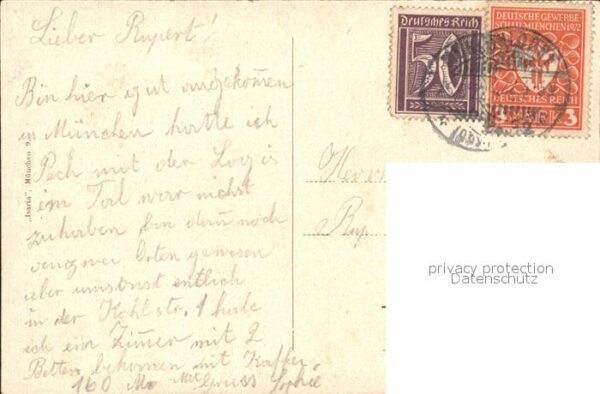 Lieber Rupert!
Bin hier gut angekommen
in München hatte ich
Pech mit der Logis
im Tal war nichts
zuhaben bin dann noch
an zwei Orten gewesen
aber umsonst entlich
in der Kohlstr. 1 habe
ich ein Zimer mit 2
Betten bekomen mit Kaffee
160 M Mit Gruss Sophie
"Isaria", München 9.
Deutsches Reich
50
DEUTSCHE GEWERBE-
SCHAU MUENCHEN 1922
DEUTSCHES REICH
3
Herrn
Rup
privacy protection
Datenschutz